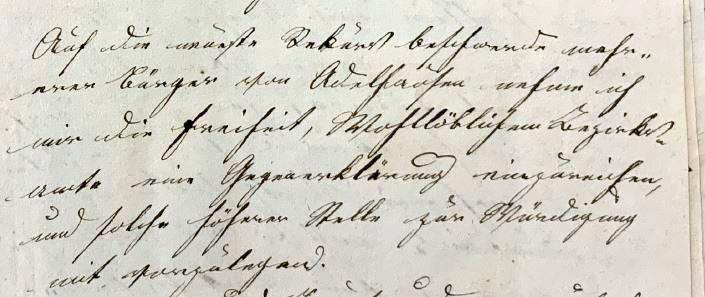 Auf die neueste Rekurs beschwerde mehr„
erer Bürger von Adelhausen nehme ich
mir die Freiheit, Wohllöblichem Bezirks„
amte eine Gegenerklärung einzureichen,
und solche höherer Stelle zur Würdigung
mit vorzulegend.